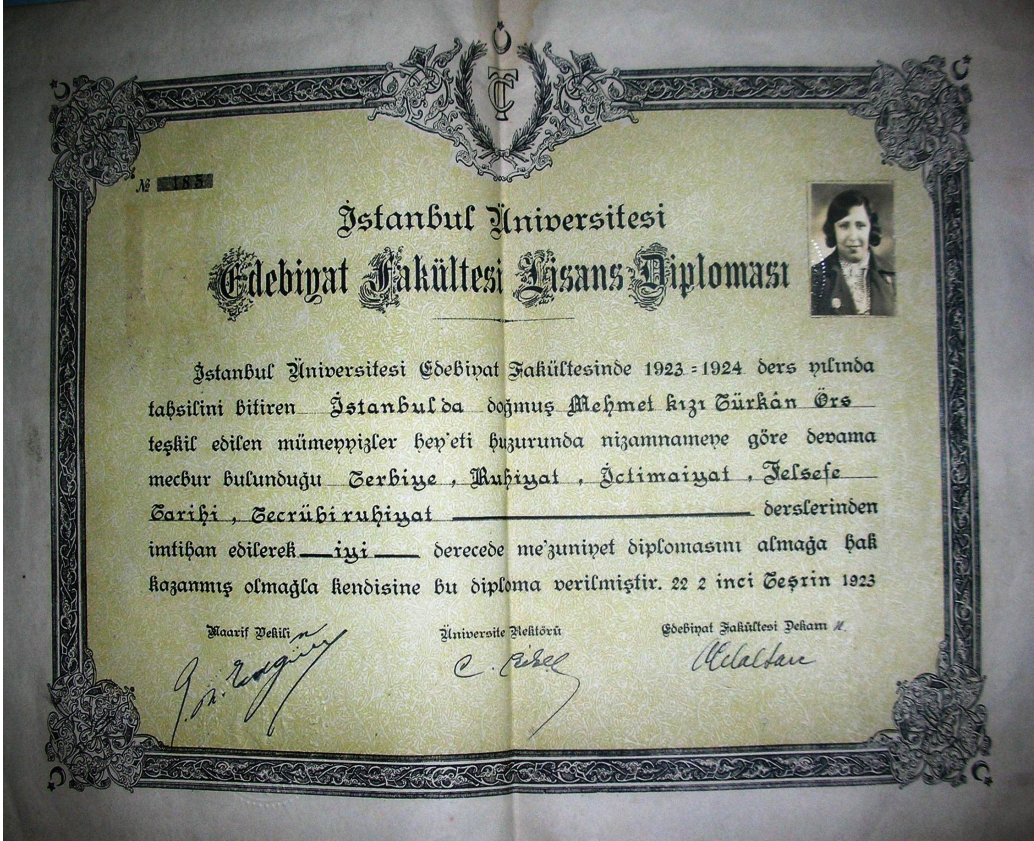 TC
№ 185
İstanbul Üniversitesi
Edebiyat Fakültesi Lisans Diploması
İstanbul Üniversitesi Edebiyat Fakültesinde 1923=1924 ders yılında
tahsilini bitiren İstanbul'da doğmuş Mehmet kızı Türkân Örs
teşkil edilen mümeyyizler hey'eti huzurunda nizamnameye göre devama
mecbur bulunduğu Terbiye, Ruhiyat, İctimaiyat, Felsefe
Tarihi, Tecrübi ruhiyat derslerinden
imtihan edilerek iyi derecede me'zuniyet diplomasını almağa hak
kazanmış olmağla kendisine bu diploma verilmiştir. 22 2 inci Teşrin 1923
Maarif Vekili Üniversite Rektörü Edebiyat Fakültesi Dekanı